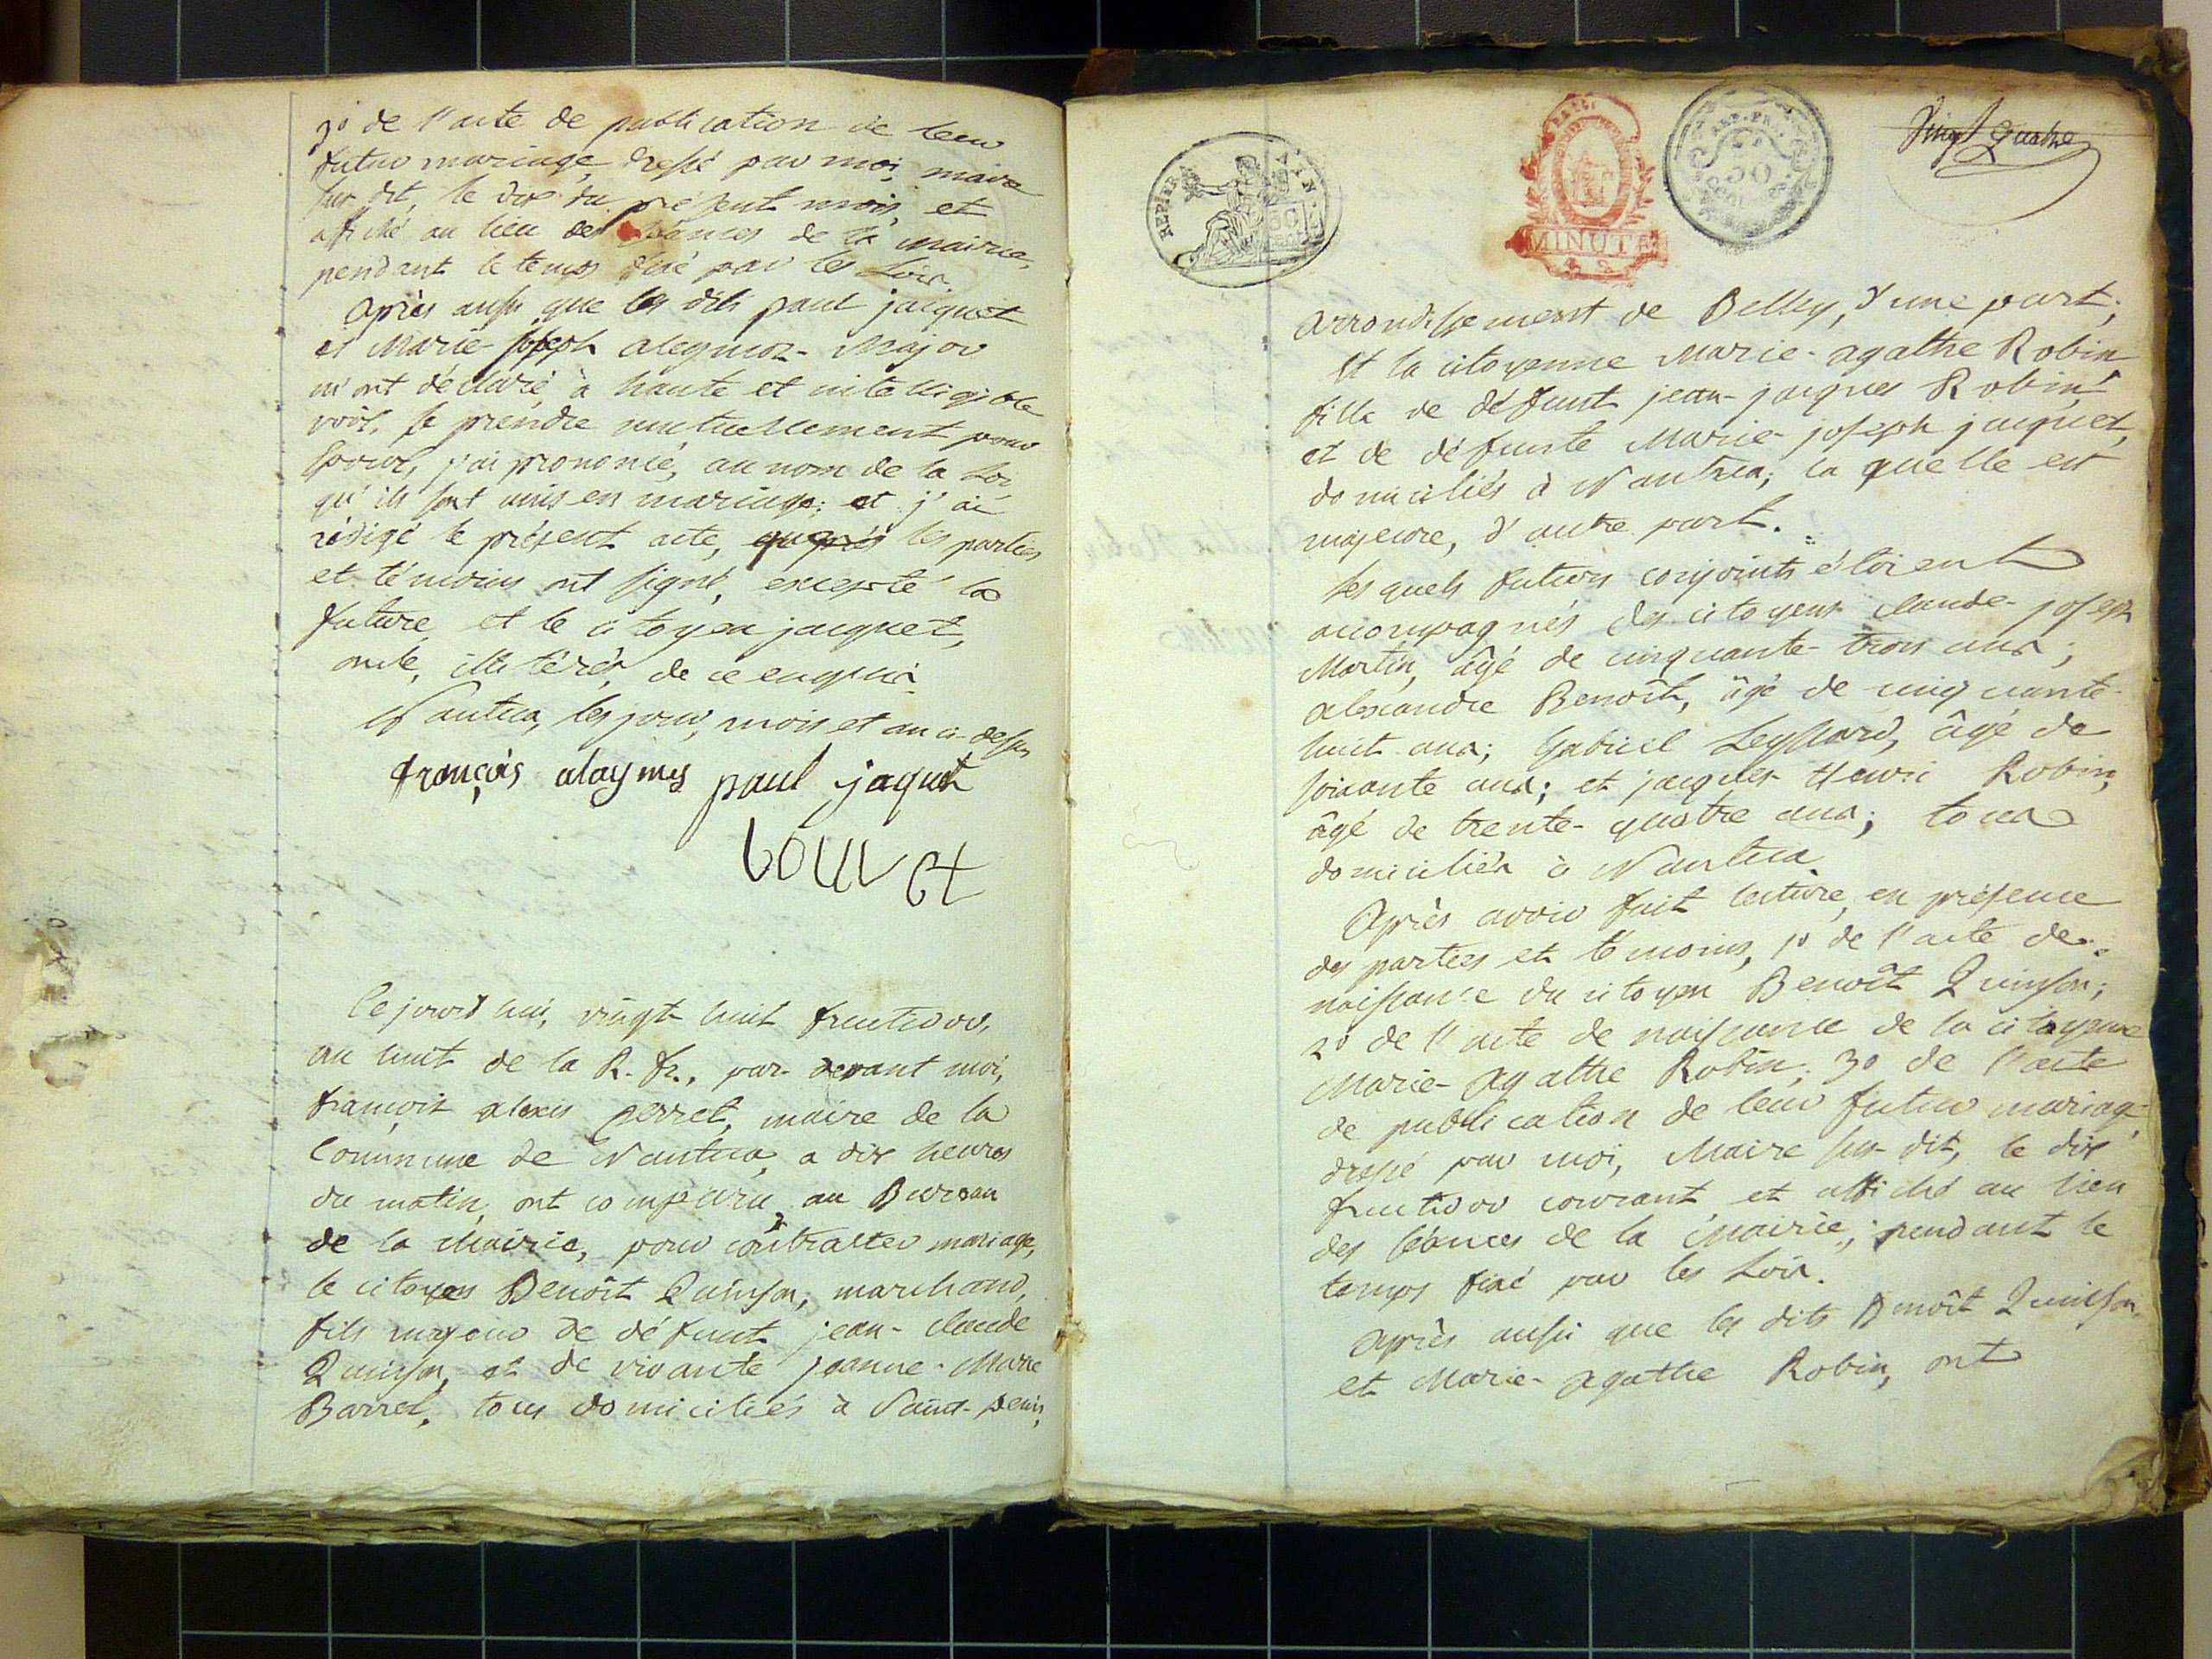 3º de l'acte de publication de leur
futur mariage, dressé par moi, maire
sus dit, le dix du présent mois, et
affiché au lieu des séances de la mairie,
pendant le temps fixé par les Loix.
Après aussi que les dits paul jaiquet
et Marie-joseph aleymoz-Major
m'ont déclaré, à haute et intelligible
voix, se prendre mutuellement pour
époux, j'ai prononcé, au nom de la Loi,
qu'ils sont unis en mariage; et j'ai
rédigé le présent acte, les parties
et témoins ont signé, excepté la
future, et le citoyen jacquet,
oncle, illitérés, de ce enquis.
Nantua, les jour, mois et an ci-dessus
françois alaymos paul jaquet
bouvet
Ce jourd'hui, vingt-huit fructidor,
an huit de la R. fr., par-devant moi,
françois alexis perret, maire de la
Commune de Nantua, a dix heures
du matin, ont comparu, au Bureau
de la Mairie, pour contracter mariage,
le citoyen Benoît Quinson, marchand,
fils majeur de défunt jean-claude
Quinson, et de vivante jeanne-Marie
Barret, tous domiciliés à Saint-Denis,
REP FRA AYN 50C
MINUTE
REP. FR. 50
Vingt quatre
arrondissement de Belley, d'une part;
Et la citoyenne Marie-agathe Robin,
fille de défunt jean-jacques Robin,
et de défunte Marie-joseph jacquet,
domiciliés à Nantua; la quelle est
majeure, d'autre part.
Les quels futurs conjoints étoient
accompagnés des citoyens claude-joseph
Martin, âgé de cinquante-trois ans;
alexandre Benoît, âgé de cinquante-
huit ans; Gabriel Leyssard, âgé de
soixante ans; et jacques Henri Robin,
âgé de trente-quatre ans; tous
domiciliés à Nantua.
Après avoir fait lecture, en présence
des parties et témoins, 1º de l'acte de
naissance du citoyen Benoît Quinson;
2º de l'acte de naissance de la citoyenne
Marie-Agathe Robin; 3º de l'acte
de publication de leur futur mariage,
dressé par moi, Maire sus-dit, le dix
fructidor courant, et affiché au lieu
des séances de la Mairie, pendant le
temps fixé par les Loix.
après aussi que les dits Benoît Quinson
et Marie-Agathe Robin, ont